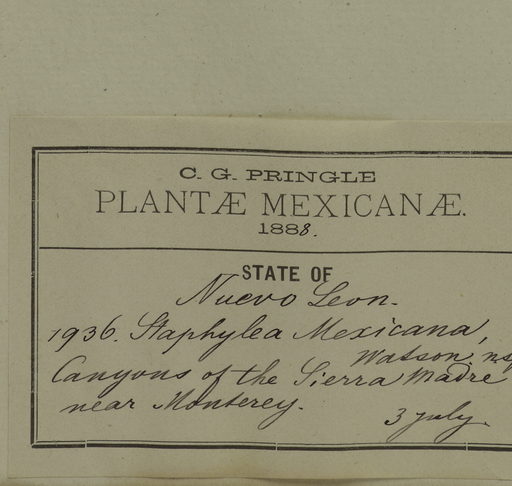 C. G. PRINGLE
PLANTÆ MEXICANÆ.
1888.
STATE OF
Nuevo Leon.
1936. Staphylea Mexicana,
Watson, nsp
Canyons of the Sierra Madre
near Monterey.
3 July.